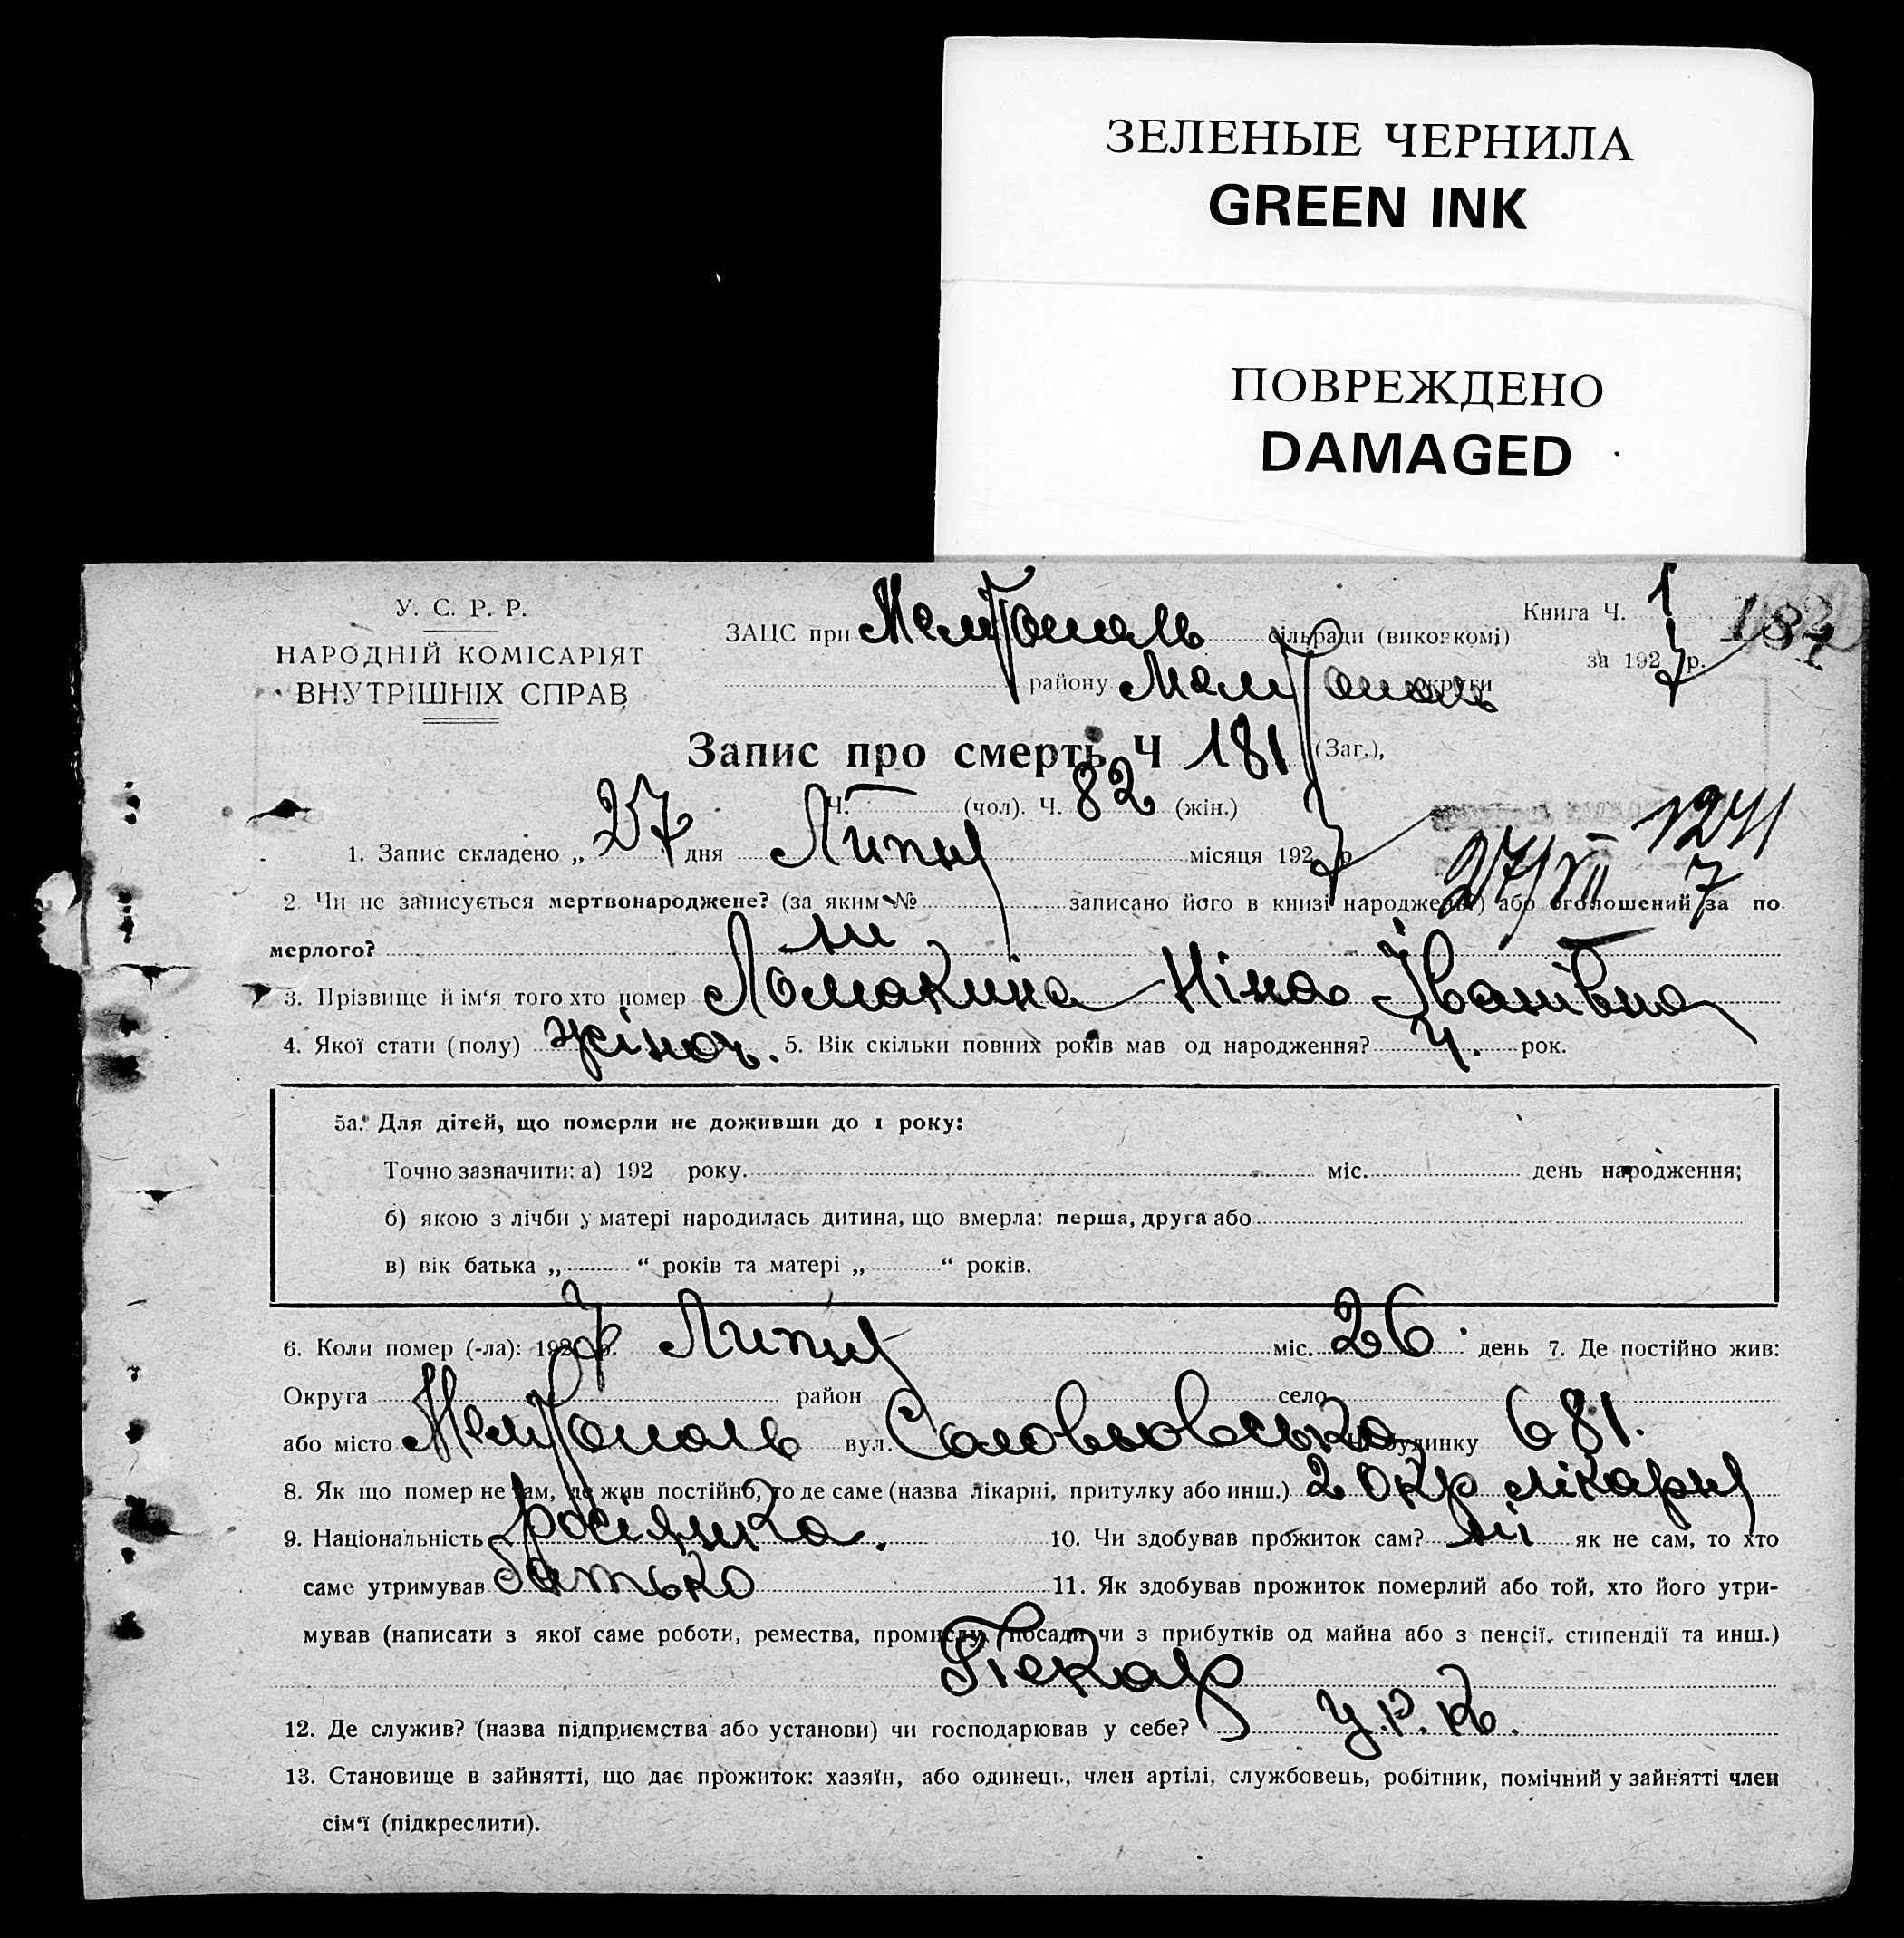 ЗЕЛЕНЫЕ ЧЕРНИЛА
GREEN INK
ПОВРЕЖДЕНО
DAMAGED
У. С. Р. Р.
НАРОДНІЙ КОМІСАРІЯТ
ВНУТРІШНІХ СПРАВ
Книга Ч. 1
ЗАЦС при Мелітополь сільради (виконкомі)
за 1927 р.
району Мелітополь округи
Запис про смерть Ч 181 (Заг.),
Ч. (чол). Ч. 82 (жін.)
1241
27/VII 7
1. Запис складено „ 27 дня Липця місяця 1927 р
2 Чи не записується мертвонароджене? (за яким № записано його в книзі народжень) або оголошений за по
мерлого? ні
3. Прізвище й ім‘я того хто помер Ломакина Ніна Іванівна
4. Якої стати (полу) жіноч. 5. Вік скільки повних років мав од народження? 4. рок.
5а. Для дітей, що померли не доживши до 1 року:
Точно зазначити: а) 192 року. міс. день народження;
б) якою з лічби у матері народилась дитина, що вмерла: перша, друга або
в) вік батька „ “ років та матері „ “ років.
6. Коли помер (-ла): 1927 р. Липця міс. 26 день 7. Де постійно жив:
Округа район село
або місто Мелітополь вул. Соловьовська Ч. будинку 681.
8. Як що помер не там, де жив постійно, то де саме (назва лікарні, притулку або инш.) 2 окр лікарня
9. Національність росіянка. 10. Чи здобував прожиток сам? ні як не сам, то хто
саме утримував батько 11. Як здобував прожиток померлий або той, хто його утри-
мував (написати з якої саме роботи, ремества, промислу, посади чи з прибутків од майна або з пенсії, стипендії та инш.)
Пекар
12. Де служив? (назва підприємства або установи) чи господарював у себе? У.Р.К.
13. Становище в зайнятті, що дає прожиток: хазяїн, або одинець, член артілі, службовець, робітник, помічний у зайнятті член
сім‘ї (підкреслити).